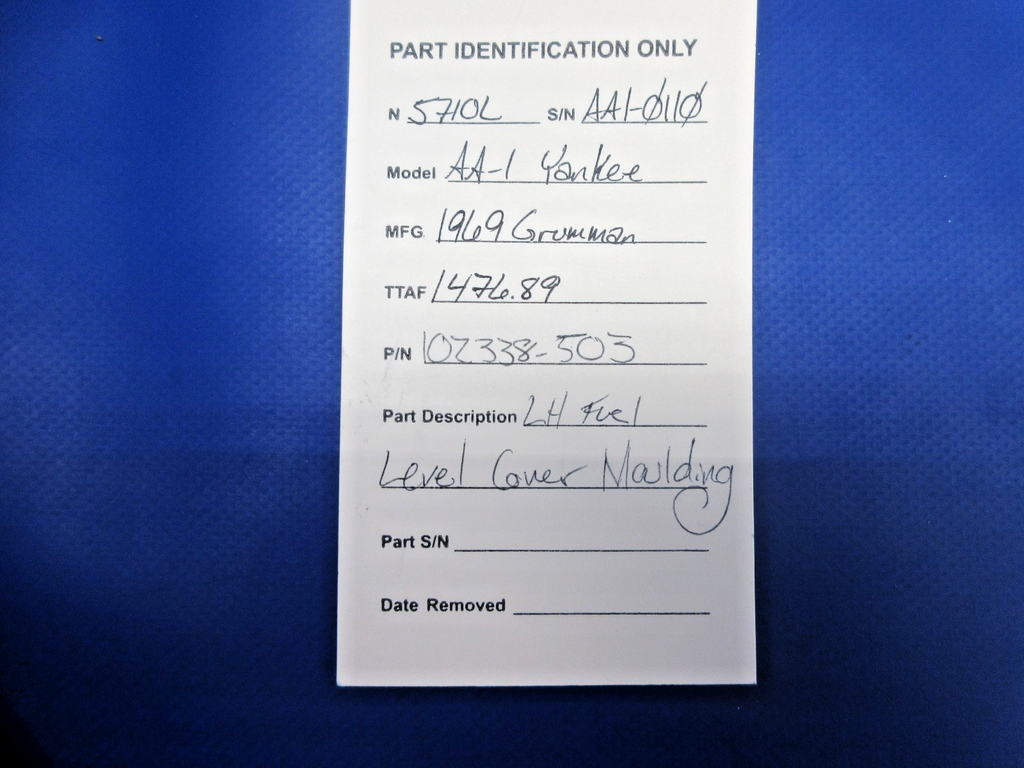 PART IDENTIFICATION ONLY
N 5710L S/N AA1-0110
Model AA-1 Yankee
MFG 1969 Grumman
TTAF 1476.89
P/N 102338-503
Part Description LH Fuel
Level Cover Moulding
Part S/N
Date Removed